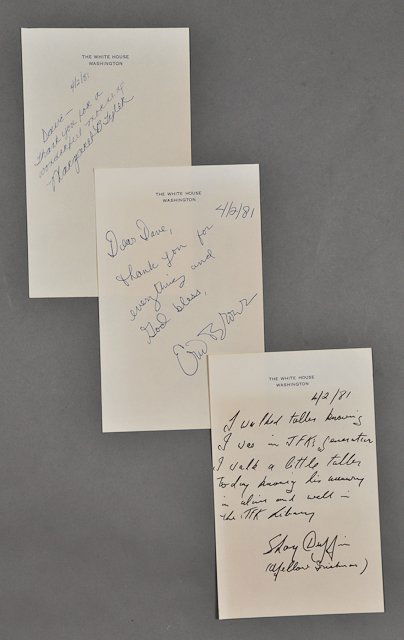 THE WHITE HOUSE
WASHINGTON
4/2/81
Dave—
Thank you for a
wonderful
Margaret
THE WHITE HOUSE
WASHINGTON
4/2/81
Dear Dave,
thank you for
everything and
God bless,
THE WHITE HOUSE
WASHINGTON
4/2/81
I walked taller knowing
I was in JFK's generation
I walk a little taller
today knowing his memory
is alive and well in
the JFK Library
Shay Duffin
(A fellow Irishman)